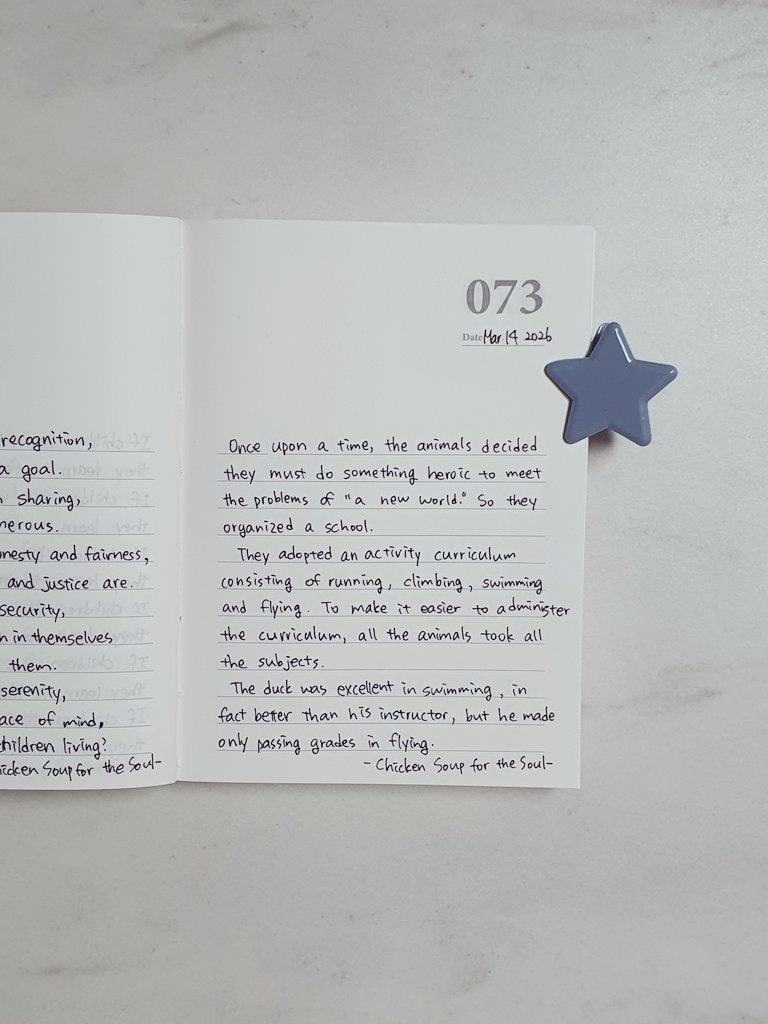 recognition,
a goal.
sharing,
and fairness,
and justice are.
security,
in themselves
them.
serenity,
of mind,
children living?
Chicken Soup for the Soul-
073
Date Mar 14 2026
Once upon a time, the animals decided
they must do something heroic to meet
the problems of "a new world." So they
organized a school.
They adopted an activity curriculum
consisting of running, climbing, swimming
and flying. To make it easier to administer
the curriculum, all the animals took all
the subjects.
The duck was excellent in swimming, in
fact better than his instructor, but he made
only passing grades in flying.
- Chicken Soup for the Soul-